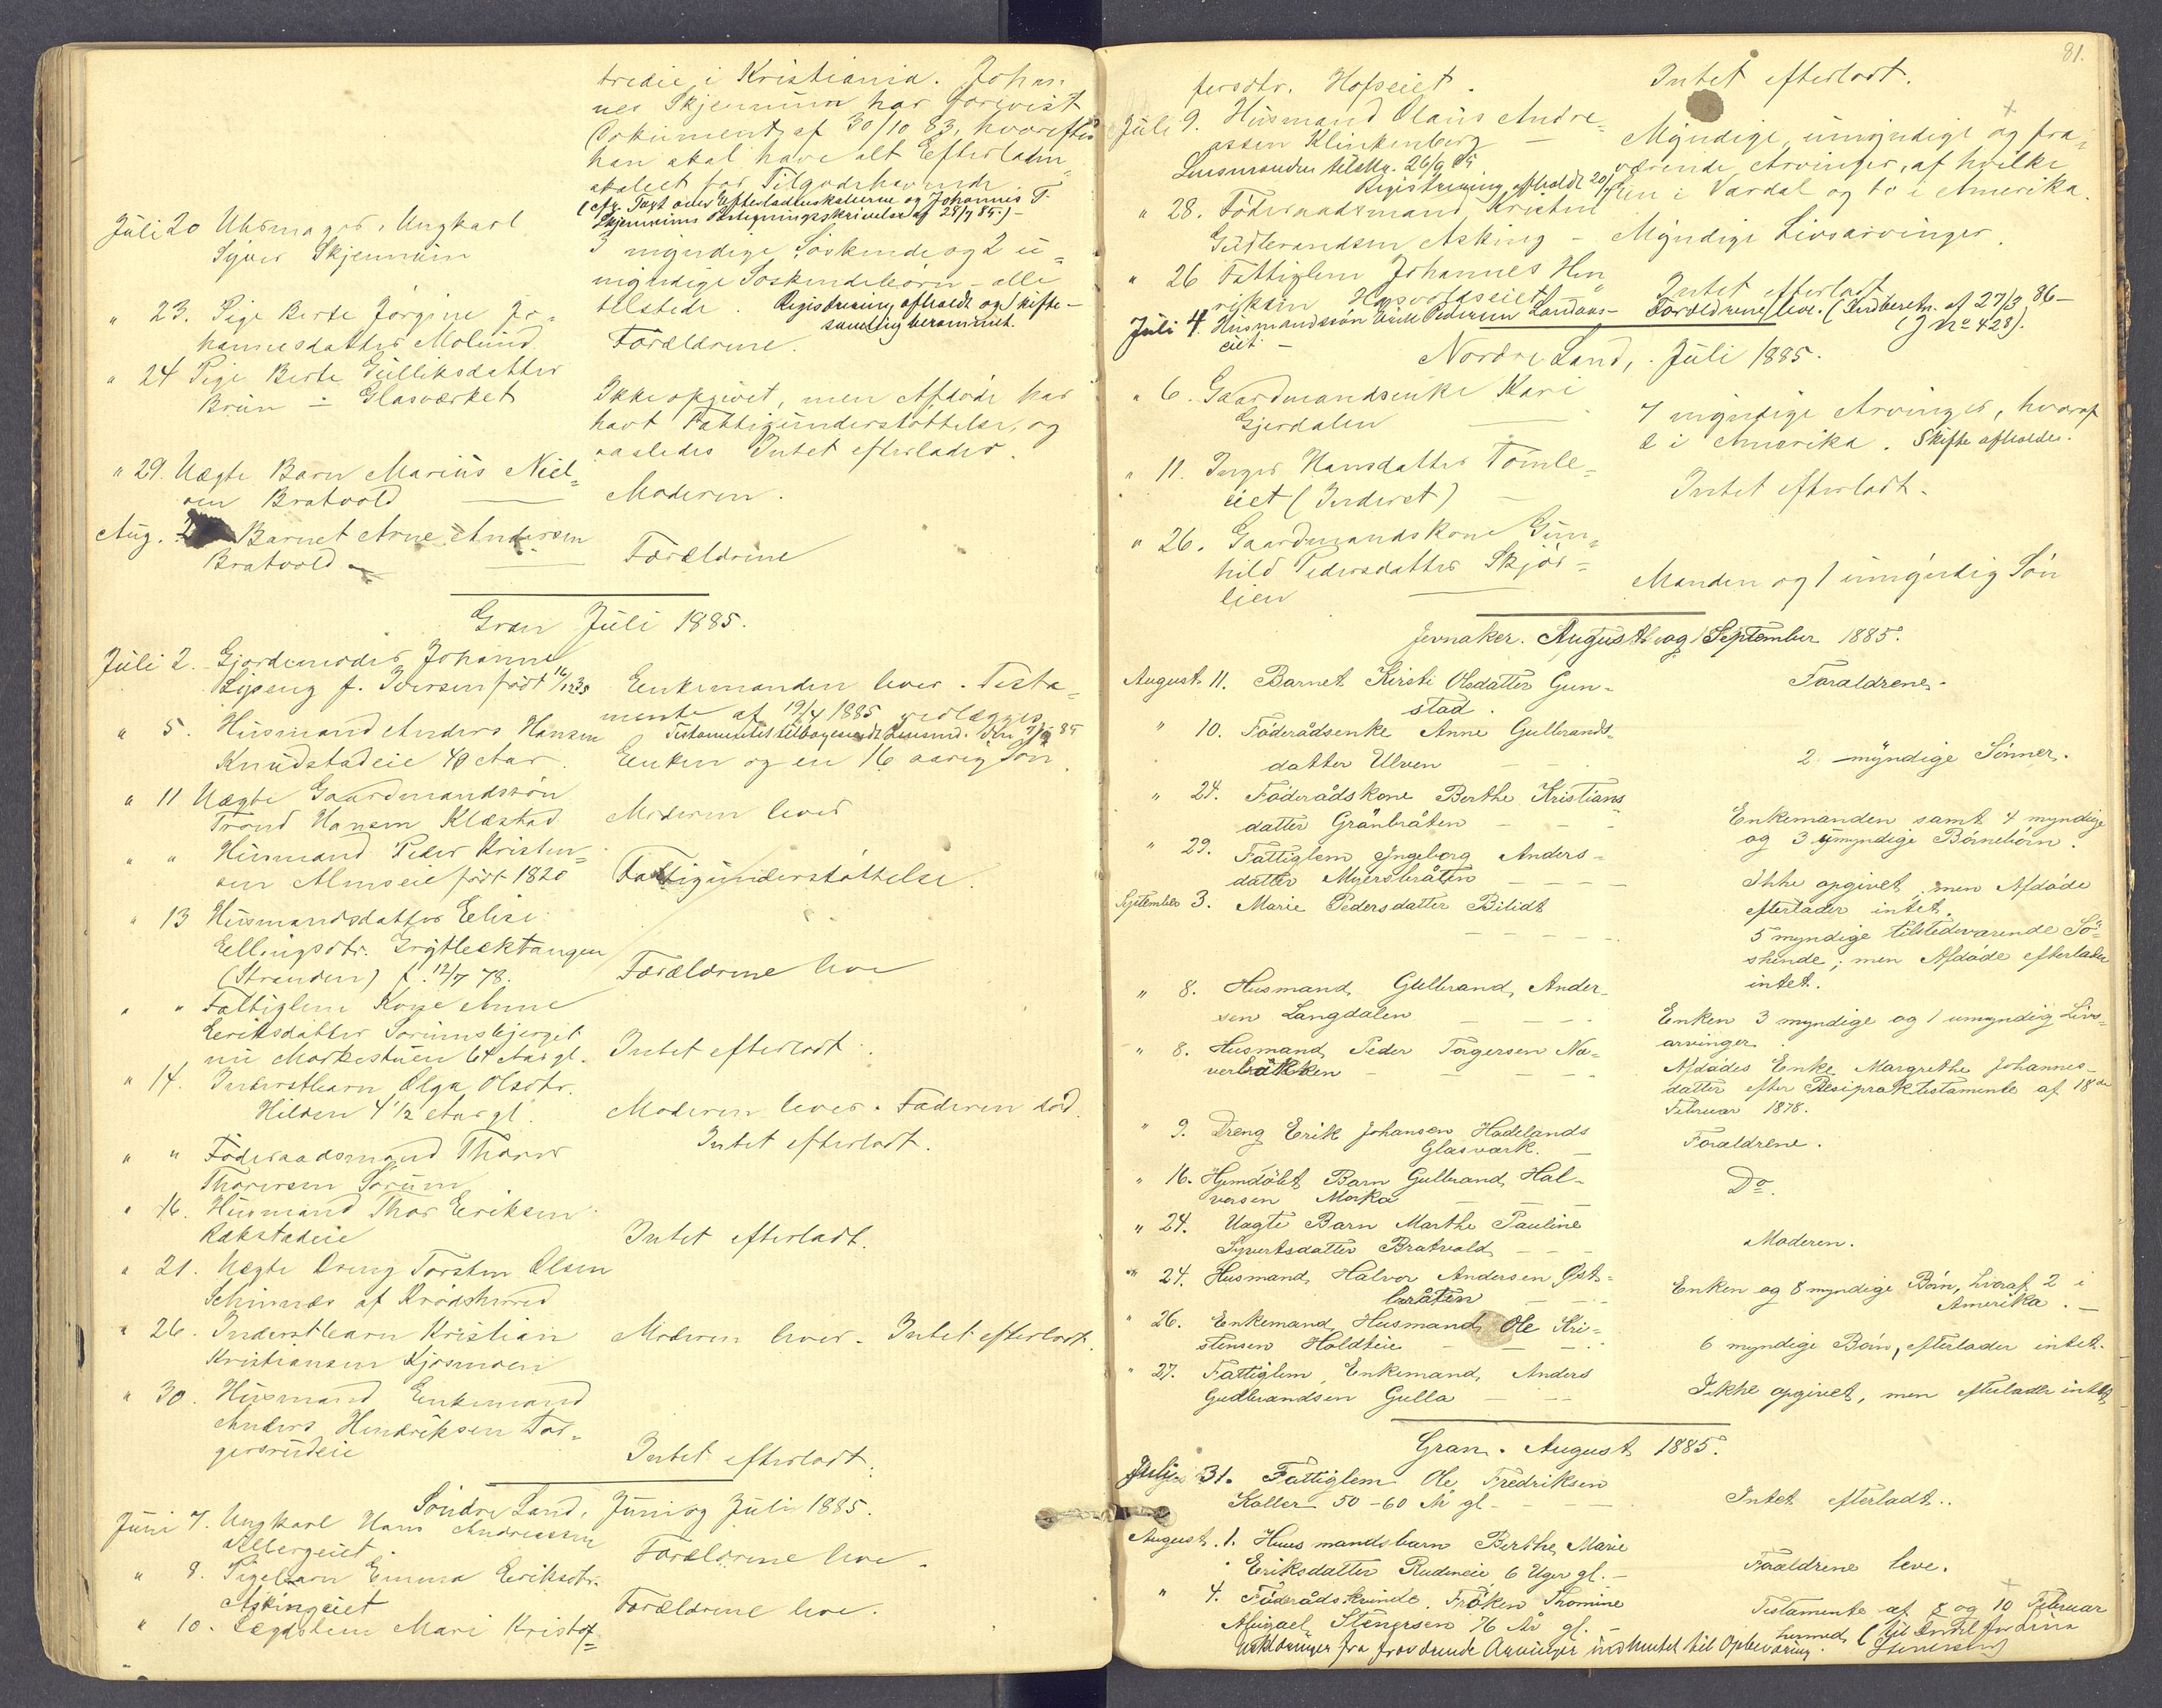 tredie i Kristiania. Johan-
nes Skjennum har forevist
Dokument af 30/10 83, hvorefter
han skal have alt Efterladen-
skabet for Tilgodehavende.
Skjennums Paategningsskrivelse af 28/7 85.) -
Juli 20 Uhrmager, Ungkarl
Syver Skjennum
3 myndige Søskende og 2 u-
myndige Søskendebørn - alle
tilstede. Registrering afholdt og skifte-
samling berammet.
" 23. Pige Berte Jørgine Jo-
hannesdatter Molund.
Forældrene.
" 24 Pige Berte Gulliksdatter
Brun - Glasværket
Ikke opgivet, men Afdøde har
havt Fattigunderstøttelse, og
saaledes Intet efterlader.
" 29. Uægte Barn Marius Niel-
sen Bratvold
Moderen.
Aug. 2 Barnet Arne Andersen
Bratvold
Forældrene
Gran Juli 1885.
Juli 2. Gjordemoder Johanne
Enkemanden lever. Testa-
mente af 19/4 1885 vedlægges
" 5. Husmand Anders Hansen
Knudstadeie 49 Aar.
Enken og en 16 aarig Søn.
" 11 Uægte Gaardmandssøn
Trond Hansen Klæstad
Moderen lever
" " Husmand Peder Kristen-
sen Almseie født 1820
Fattigunderstøttelse.
" 13 Husmandsdatter Elise
Ellingsdtr. Grytlecktangen
(Stranden) f. 12/7 78.
Forældrene leve
" " Fattiglem Kone Anne
Eriksdatter Sorumsbjerget
nu Morkestuen 64 Aar gl.
Intet efterladt.
" 14. Inderstbarn Olga Olsdtr.
Hilden 4 1/2 Aar gl.
Moderen lever. Faderen død.
Intet efterladt.
" " Føderaadsmand Thorer
Thorersen Sørum
" 16. Husmand Thor Eriksen
Rækstadeie
Intet efterladt.
" 21. Uægte Dreng Torsten Olsen
af Krødsherred
" 26. Inderstbarn Kristian
Kristiansen Kjosmoen
Moderen lever. Intet efterladt.
" 30. Husmand Enkemand
Anders Hendriksen Tor-
gersrudeie
Intet efterladt.
Søndre Land, Juni og Juli 1885.
Juni 7. Ungkarl Hans Andreassen
Forældrene leve.
" 8. Pigebarn Emma Eriksdtr.
Askingeiet
Forældrene leve.
" 10. Lægdslem Mari Kristof-
81.
fersdtr. Hofseiet.
Intet efterladt.
Juli 9. Husmand Olaus Andre-
assen Klinkenberg
Myndige, umyndige og fra-
værende Arvinger, af hvilke
en i Vardal og to i Amerika.
" 28. Føderaadsmand Kristen
Gudbrandsen Asking -
Myndige Livsarvinger.
" 26 Fattiglem Johannes Hen-
riksen
Intet efterladt
Juli 4. Husmandssøn Erik Pedersen Landaas-
eiet -
Forældrene leve. (Indberetn. af 27/3 86 -
(J No 428).
Nordre Land, Juli 1885.
" 6. Gaardmandsenke Kari
Gjerdalen
7 myndige Arvinger, hvoraf
2 i Amerika. Skifte afholdes.
" 11. Inger Hansdatter Tomle-
eiet (Inderst)
Intet efterladt.
" 26. Gaardmandskone Gun-
hild Pedersdatter Skjøl-
lien
Manden og 1 umyndig Søn
Jevnaker. August og September 1885.
August 11. Barnet Kirsti Olsdatter Gun-
stad.
Forældrene.
" 10. Føderådsenke Anne Gulbrands-
datter Ulven
2 myndige Sønner.
" 24. Føderådskone Berthe Kristians-
datter Grånbråten
Enkemanden samt 4 myndige
og 3 umyndige Børnebørn.
" 29. Fattiglem Ingeborg Anders-
datter Myersbråten
Ikke opgivet, men Afdøde
efterlader intet.
September 3. Marie Pedersdatter Bilidt
5 myndige tilstedeværende Sø-
skende; men Afdøde efterlader
intet.
" 8. Husmand Gulbrand Ander-
sen Langdalen
Enken 3 myndige og 1 umyndig Livs-
arvinger.
" 8. Husmand Peder Torgersen Næ-
verbråkken
Afdødes Enke Margrethe Johannes-
datter efter Resiprok Testamente af 18de
Februar 1878.
" 9. Dreng Erik Johansen Hadelands
Glasværk.
Forældrene.
" 16. Hjemdøbt Barn Gulbrand Hal-
vorsen Morka
Do.
" 24. Uægte Barn Marthe Pauline
Syvertsdatter Bratvold
Moderen.
" 24. Husmand Halvor Andersen Øst-
bråten
Enken og 8 myndige Børn, hvoraf 2 i
Amerika.
" 26. Enkemand, Husmand Ole Kri-
stensen Holdteie
6 myndige Børn, efterlader intet.
" 27. Fattiglem, Enkemand, Anders
Gudbrandsen Gulla
Ikke opgivet, men efterlader intet
Gran. August 1885.
Juli 31. Fattiglem Ole Fredriksen
Koller 50-60 År gl.
Intet efterladt.
August 1. Huusmandsbarn Berthe Marie
Eriksdatter Rudineie 6 Uger gl.
Forældrene leve.
" 4. Føderådskvinde, Frøken Thomine
Abigael Stenersen 76 År gl.
Testamente af 8 og 10 Februar